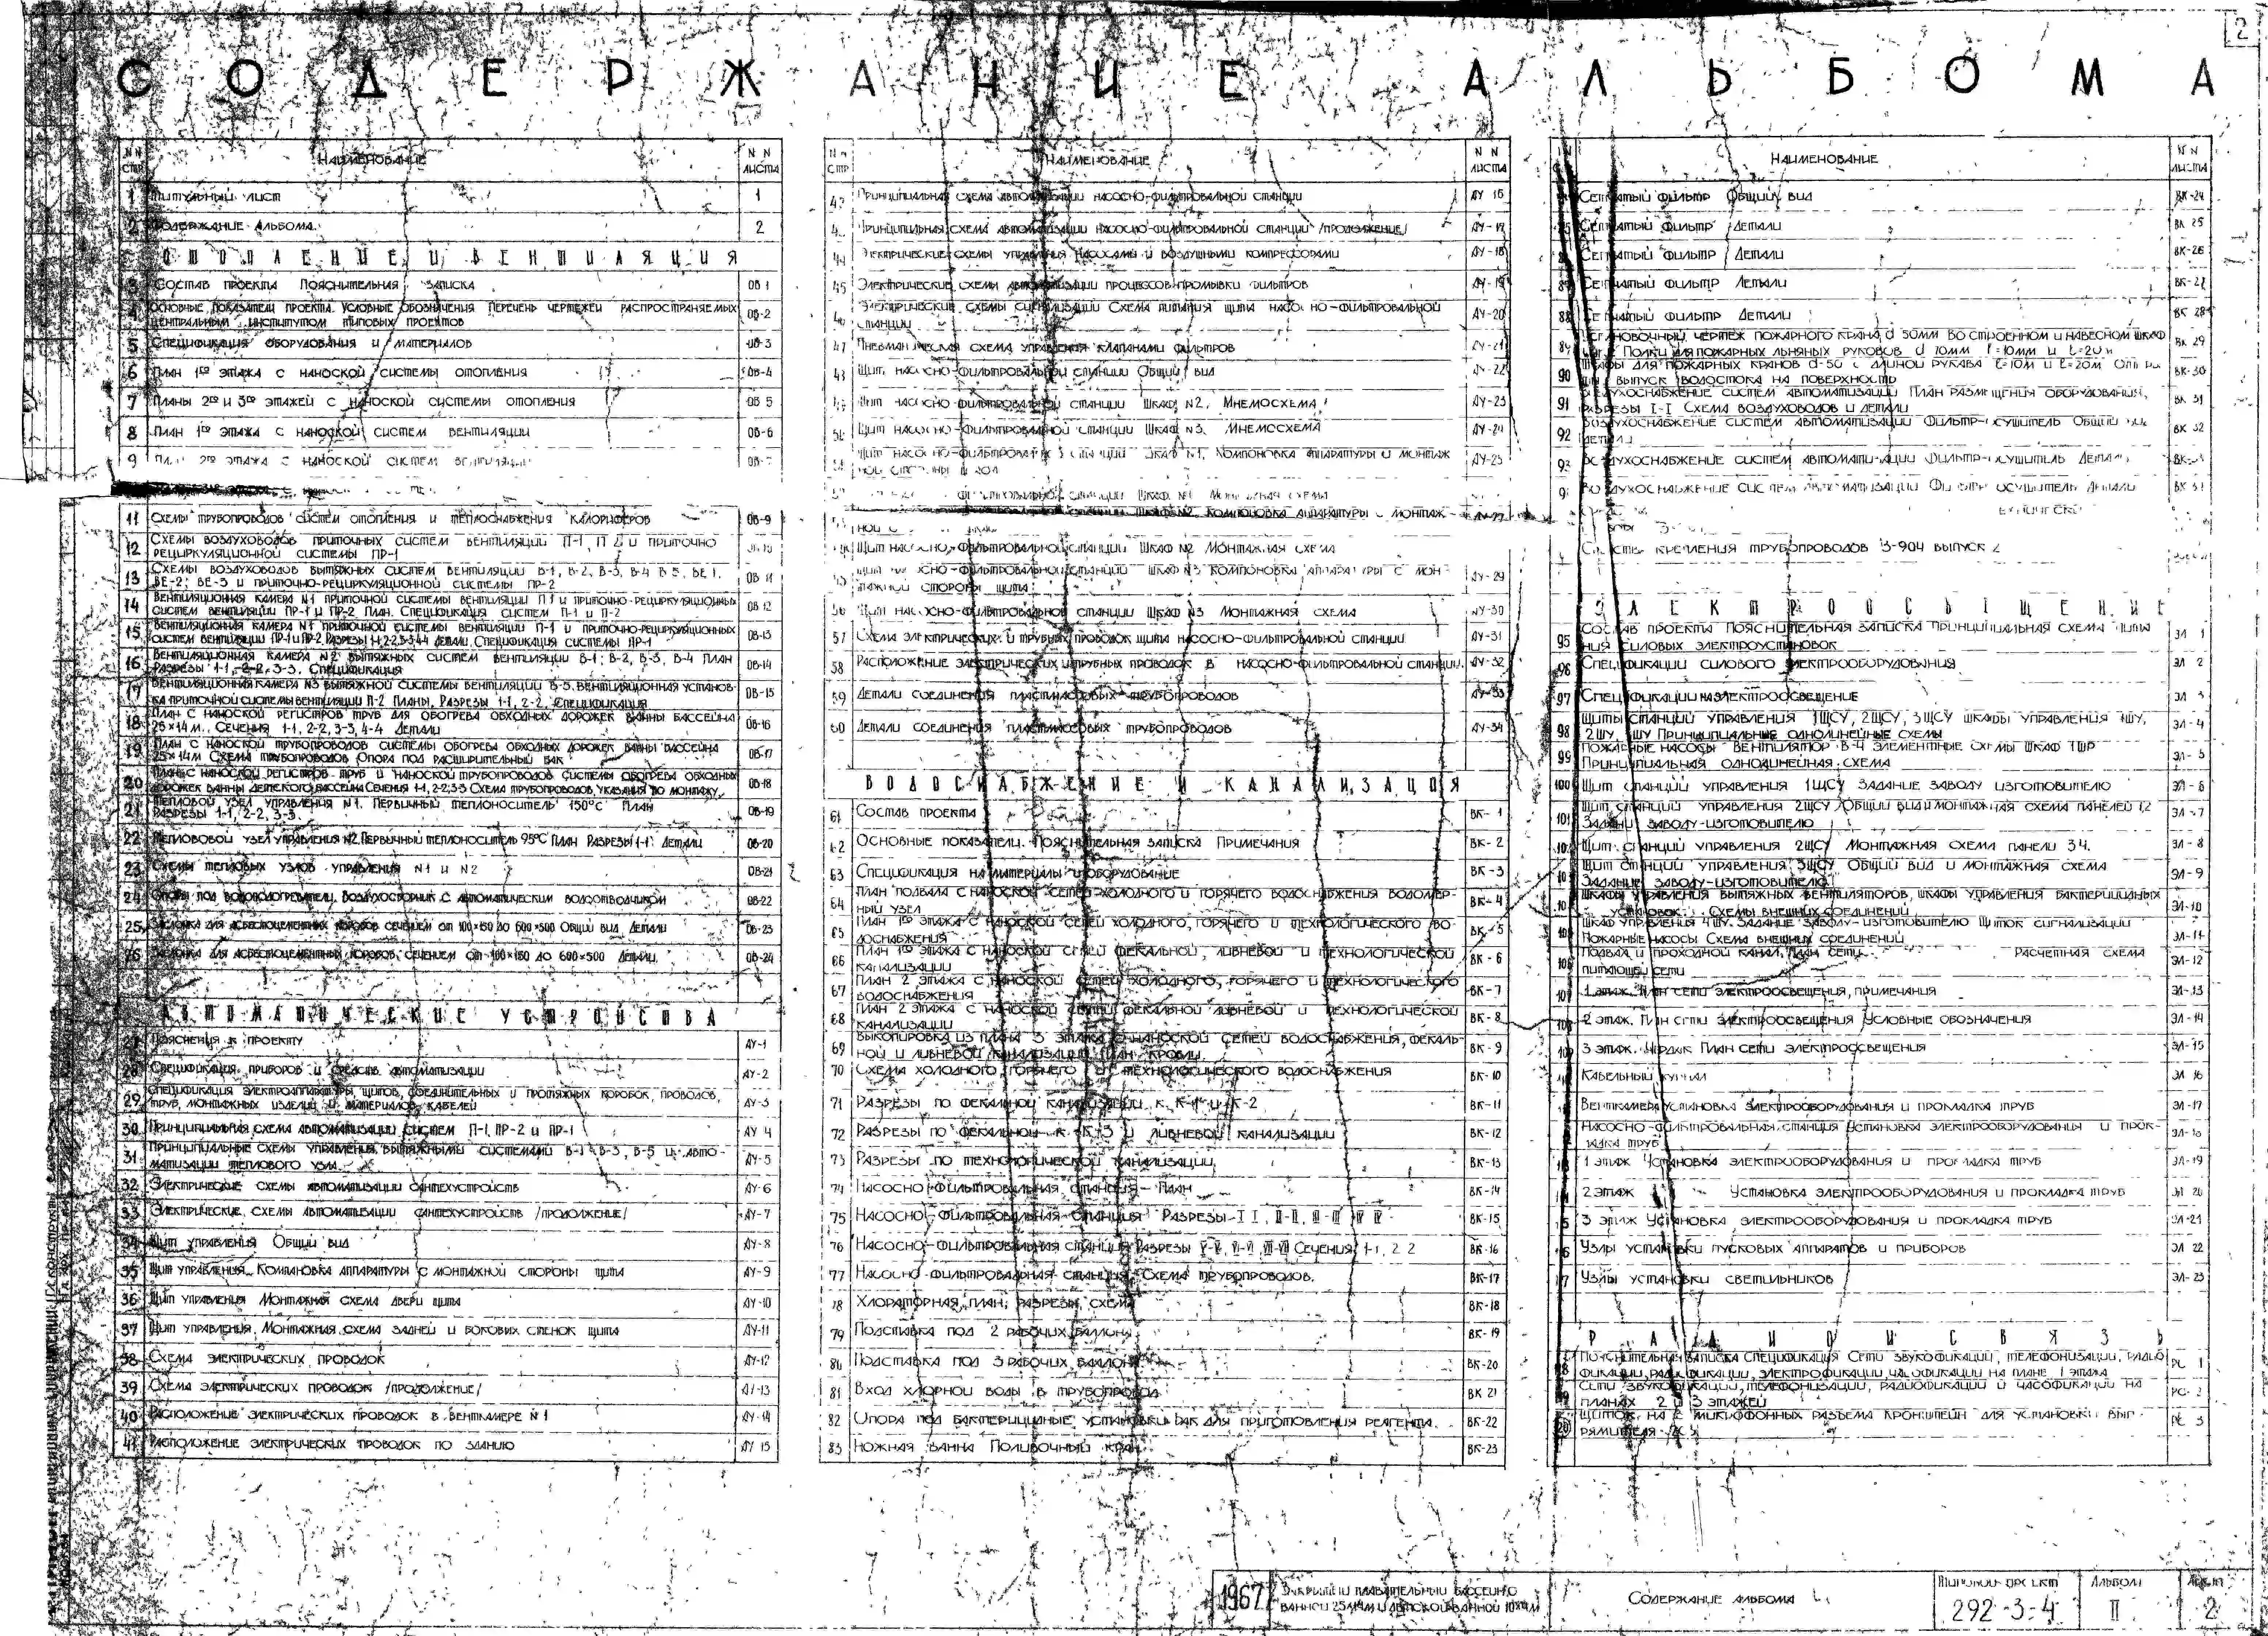 2
СОДЕРЖАНИЕ АЛЬБОМА
N N СТР
НАИМЕНОВАНИЕ
N N ЛИСТА
1 ТИТУЛЬНЫЙ ЛИСТ 1
2 СОДЕРЖАНИЕ АЛЬБОМА 2
ОТОПЛЕНИЕ И ВЕНТИЛЯЦИЯ
3 СОСТАВ ПРОЕКТА ПОЯСНИТЕЛЬНАЯ ЗАПИСКА ОВ 1
4 ОСНОВНЫЕ ПОКАЗАТЕЛИ ПРОЕКТА. УСЛОВНЫЕ ОБОЗНАЧЕНИЯ ПЕРЕЧЕНЬ ЧЕРТЕЖЕЙ РАСПРОСТРАНЯЕМЫХ ОВ-2
ЦЕНТРАЛЬНЫМ ИНСТИТУТОМ ТИПОВЫХ ПРОЕКТОВ
5 СПЕЦИФИКАЦИЯ ОБОРУДОВАНИЯ И МАТЕРИАЛОВ ОВ-3
6 ПЛАН 1ГО ЭТАЖА С НАНОСКОЙ СИСТЕМЫ ОТОПЛЕНИЯ ОВ-4
7 ПЛАНЫ 2ГО И 3ГО ЭТАЖЕЙ С НАНОСКОЙ СИСТЕМЫ ОТОПЛЕНИЯ ОВ 5
8 ПЛАН 1ГО ЭТАЖА С НАНОСКОЙ СИСТЕМ ВЕНТИЛЯЦИИ ОВ-6
9 ПЛАН 2ГО ЭТАЖА С НАНОСКОЙ СИСТЕМ ВЕНТИЛЯЦИИ ОВ-7
11 СХЕМЫ ТРУБОПРОВОДОВ СИСТЕМ ОТОПЛЕНИЯ И ТЕПЛОСНАБЖЕНИЯ КАЛОРИФЕРОВ ОВ-9
12 СХЕМЫ ВОЗДУХОВОДОВ ПРИТОЧНЫХ СИСТЕМ ВЕНТИЛЯЦИИ П-1, П 2 И ПРИТОЧНО
РЕЦИРКУЛЯЦИОННОЙ СИСТЕМЫ ПР-1
13 СХЕМЫ ВОЗДУХОВОДОВ ВЫТЯЖНЫХ СИСТЕМ ВЕНТИЛЯЦИИ В-1, В-2, В-3, В-4 В 5, ВЕ 1, ОВ 11
ВЕ-2; ВЕ-3 И ПРИТОЧНО-РЕЦИРКУЛЯЦИОННОЙ СИСТЕМЫ ПР-2
14 ВЕНТИЛЯЦИОННАЯ КАМЕРА N1 ПРИТОЧНОЙ СИСТЕМЫ ВЕНТИЛЯЦИИ П 1 И ПРИТОЧНО-РЕЦИРКУЛЯЦИОННЫХ ОВ 12
СИСТЕМ ВЕНТИЛЯЦИИ ПР-1 И ПР-2 ПЛАН. СПЕЦИФИКАЦИЯ СИСТЕМ П-1 И П-2
15 ВЕНТИЛЯЦИОННАЯ КАМЕРА N1 ПРИТОЧНОЙ СИСТЕМЫ ВЕНТИЛЯЦИИ П-1 И ПРИТОЧНО-РЕЦИРКУЛЯЦИОННЫХ ОВ-13
СИСТЕМ ВЕНТИЛЯЦИИ ПР-1 И ПР-2 РАЗРЕЗЫ 1-1, 2-2, 3-3 4-4 ДЕТАЛИ. СПЕЦИФИКАЦИЯ СИСТЕМЫ ПР-1
16 ВЕНТИЛЯЦИОННАЯ КАМЕРА N2 ВЫТЯЖНЫХ СИСТЕМ ВЕНТИЛЯЦИИ В-1; В-2, В-3, В-4 ПЛАН ОВ-14
РАЗРЕЗЫ 1-1, 2-2, 3-3. СПЕЦИФИКАЦИЯ
17 ВЕНТИЛЯЦИОННАЯ КАМЕРА N3 ВЫТЯЖНОЙ СИСТЕМЫ ВЕНТИЛЯЦИИ В-5. ВЕНТИЛЯЦИОННАЯ УСТАНОВ- ОВ-15
КА ПРИТОЧНОЙ СИСТЕМЫ ВЕНТИЛЯЦИИ П-2 ПЛАНЫ, РАЗРЕЗЫ 1-1, 2-2, СПЕЦИФИКАЦИЯ
18 ПЛАН С НАНОСКОЙ РЕГИСТРОВ ТРУБ ДЛЯ ОБОГРЕВА ОБХОДНЫХ ДОРОЖЕК ВАННЫ БАССЕЙНА ОВ-16
25×14 М. СЕЧЕНИЯ 1-1, 2-2, 3-3, 4-4 ДЕТАЛИ
19 ПЛАН С НАНОСКОЙ ТРУБОПРОВОДОВ СИСТЕМЫ ОБОГРЕВА ОБХОДНЫХ ДОРОЖЕК ВАННЫ БАССЕЙНА ОВ-17
25×14М СХЕМА ТРУБОПРОВОДОВ ОПОРА ПОД РАСШИРИТЕЛЬНЫЙ БАК
20 ПЛАН С НАНОСКОЙ РЕГИСТРОВ ТРУБ И НАНОСКОЙ ТРУБОПРОВОДОВ СИСТЕМЫ ОБОГРЕВА ОБХОДНЫХ ОВ-18
ДОРОЖЕК ВАННЫ ДЕТСКОГО БАССЕЙНА СЕЧЕНИЯ 1-1, 2-2, 3-3 СХЕМА ТРУБОПРОВОДОВ, УКАЗАНИЯ ПО МОНТАЖУ
21 ТЕПЛОВОЙ УЗЕЛ УПРАВЛЕНИЯ N1. ПЕРВИЧНЫЙ ТЕПЛОНОСИТЕЛЬ 150°С ПЛАН ОВ-19
РАЗРЕЗЫ 1-1, 2-2, 3-3.
22 ТЕПЛОВОВОЙ УЗЕЛ УПРАВЛЕНИЯ N2. ПЕРВИЧНЫЙ ТЕПЛОНОСИТЕЛЬ 95°С ПЛАН РАЗРЕЗЫ 1-1 ДЕТАЛИ ОВ-20
23 СХЕМЫ ТЕПЛОВЫХ УЗЛОВ УПРАВЛЕНИЯ N1 И N2 ОВ-21
24 ОПОРЫ ПОД ВОДОПОДОГРЕВАТЕЛИ. ВОЗДУХОСБОРНИК С АВТОМАТИЧЕСКИМ ВОДООТВОДЧИКОМ ОВ-22
25 ЗАСЛОНКА ДЛЯ АСБЕСТОЦЕМЕНТНЫХ КОРОБОВ СЕЧЕНИЕМ ОТ 100×150 ДО 600×500 ОБЩИЙ ВИД ДЕТАЛИ ОВ-23
26 ЗАСЛОНКА ДЛЯ АСБЕСТОЦЕМЕНТНЫХ КОРОБОВ, СЕЧЕНИЕМ ОТ 100×150 ДО 600×500 ДЕТАЛИ ОВ-24
АВТОМАТИЧЕСКИЕ УСТРОЙСТВА
27 ПОЯСНЕНИЯ К ПРОЕКТУ АУ-1
28 СПЕЦИФИКАЦИЯ ПРИБОРОВ И СРЕДСТВ АВТОМАТИЗАЦИИ АУ-2
29 СПЕЦИФИКАЦИЯ ЭЛЕКТРОАППАРАТУРЫ, ЩИТОВ, СОЕДИНИТЕЛЬНЫХ И ПРОТЯЖНЫХ КОРОБОК, ПРОВОДОВ, АУ-3
ТРУБ, МОНТАЖНЫХ ИЗДЕЛИЙ И МАТЕРИАЛОВ, КАБЕЛЕЙ
30 ПРИНЦИПИАЛЬНАЯ СХЕМА АВТОМАТИЗАЦИИ СИСТЕМ П-1, ПР-2 И ПР-1 АУ 4
31 ПРИНЦИПИАЛЬНЫЕ СХЕМЫ УПРАВЛЕНИЯ ВЫТЯЖНЫМИ СИСТЕМАМИ В-1 В-3, В-5 И АВТО- АУ-5
МАТИЗАЦИИ ТЕПЛОВОГО УЗЛА
32 ЭЛЕКТРИЧЕСКИЕ СХЕМЫ АВТОМАТИЗАЦИИ САНТЕХУСТРОЙСТВ АУ-6
33 ЭЛЕКТРИЧЕСКИЕ СХЕМЫ АВТОМАТИЗАЦИИ САНТЕХУСТРОЙСТВ /ПРОДОЛЖЕНИЕ/ АУ-7
34 ЩИТ УПРАВЛЕНИЯ ОБЩИЙ ВИД АУ-8
35 ЩИТ УПРАВЛЕНИЯ. КОМПАНОВКА АППАРАТУРЫ С МОНТАЖНОЙ СТОРОНЫ ЩИТА АУ-9
36 ЩИТ УПРАВЛЕНИЯ МОНТАЖНАЯ СХЕМА ДВЕРИ ЩИТА АУ-10
37 ЩИТ УПРАВЛЕНИЯ. МОНТАЖНАЯ СХЕМА ЗАДНЕЙ И БОКОВЫХ СТЕНОК ЩИТА АУ-11
38 СХЕМА ЭЛЕКТРИЧЕСКИХ ПРОВОДОК АУ-12
39 СХЕМА ЭЛЕКТРИЧЕСКИХ ПРОВОДОК /ПРОДОЛЖЕНИЕ/ АУ-13
40 РАСПОЛОЖЕНИЕ ЭЛЕКТРИЧЕСКИХ ПРОВОДОК В ВЕНТКАМЕРЕ N1 АУ-14
41 РАСПОЛОЖЕНИЕ ЭЛЕКТРИЧЕСКИХ ПРОВОДОК ПО ЗДАНИЮ АУ 15
НАИМЕНОВАНИЕ
N N ЛИСТА
42 ПРИНЦИПИАЛЬНАЯ СХЕМА АВТОМАТИЗАЦИИ НАСОСНО-ФИЛЬТРОВАЛЬНОЙ СТАНЦИИ АУ 16
ПРИНЦИПИАЛЬНАЯ СХЕМА АВТОМАТИЗАЦИИ НАСОСНО-ФИЛЬТРОВАЛЬНОЙ СТАНЦИИ /ПРОДОЛЖЕНИЕ/ АУ-17
44 ЭЛЕКТРИЧЕСКИЕ СХЕМЫ УПРАВЛЕНИЯ НАСОСАМИ И ВОЗДУШНЫМИ КОМПРЕССОРАМИ АУ-18
45 ЭЛЕКТРИЧЕСКИЕ СХЕМЫ АВТОМАТИЗАЦИИ ПРОЦЕССОВ ПРОМЫВКИ ФИЛЬТРОВ АУ-19
46 ЭЛЕКТРИЧЕСКИЕ СХЕМЫ СИГНАЛИЗАЦИИ СХЕМА ПИТАНИЯ ЩИТА НАСОСНО-ФИЛЬТРОВАЛЬНОЙ АУ-20
СТАНЦИИ
47 ПНЕВМАТИЧЕСКАЯ СХЕМА УПРАВЛЕНИЯ КЛАПАНАМИ ФИЛЬТРОВ АУ-21
48 ЩИТ НАСОСНО-ФИЛЬТРОВАЛЬНОЙ СТАНЦИИ ОБЩИЙ ВИД АУ-22
ЩИТ НАСОСНО-ФИЛЬТРОВАЛЬНОЙ СТАНЦИИ ШКАФ N2. МНЕМОСХЕМА АУ-23
ЩИТ НАСОСНО-ФИЛЬТРОВАЛЬНОЙ СТАНЦИИ ШКАФ N3. МНЕМОСХЕМА АУ-24
ЩИТ НАСОСНО-ФИЛЬТРОВАЛЬНОЙ СТАНЦИИ ШКАФ N1, КОМПОНОВКА АППАРАТУРЫ С МОНТАЖ АУ-25
ШКАФ N1 МОНТАЖНАЯ СХЕМА
ШКАФ N2. КОМПОНОВКА АППАРАТУРЫ С МОНТАЖ
ЩИТ НАСОСНО-ФИЛЬТРОВАЛЬНОЙ СТАНЦИИ ШКАФ N2 МОНТАЖНАЯ СХЕМА
ЩИТ НАСОСНО-ФИЛЬТРОВАЛЬНОЙ СТАНЦИИ ШКАФ N3 КОМПОНОВКА АППАРАТУРЫ С МОН- АУ-29
ТАЖНОЙ СТОРОНЫ ЩИТА
56 ЩИТ НАСОСНО-ФИЛЬТРОВАЛЬНОЙ СТАНЦИИ ШКАФ N3 МОНТАЖНАЯ СХЕМА АУ-30
57 СХЕМА ЭЛЕКТРИЧЕСКИХ И ТРУБНЫХ ПРОВОДОК ЩИТА НАСОСНО-ФИЛЬТРОВАЛЬНОЙ СТАНЦИИ АУ-31
58 РАСПОЛОЖЕНИЕ ЭЛЕКТРИЧЕСКИХ И ТРУБНЫХ ПРОВОДОК В НАСОСНО-ФИЛЬТРОВАЛЬНОЙ СТАНЦИИ. АУ-32
59 ДЕТАЛИ СОЕДИНЕНИЯ ПЛАСТМАССОВЫХ ТРУБОПРОВОДОВ АУ-33
60 ДЕТАЛИ СОЕДИНЕНИЯ ПЛАСТМАССОВЫХ ТРУБОПРОВОДОВ АУ-34
ВОДОСНАБЖЕНИЕ И КАНАЛИЗАЦИЯ
61 СОСТАВ ПРОЕКТА ВК-1
62 ОСНОВНЫЕ ПОКАЗАТЕЛИ. ПОЯСНИТЕЛЬНАЯ ЗАПИСКА ПРИМЕЧАНИЯ ВК-2
63 СПЕЦИФИКАЦИЯ НА МАТЕРИАЛЫ И ОБОРУДОВАНИЕ ВК-3
64 ПЛАН ПОДВАЛА С НАНОСКОЙ СЕТЕЙ ХОЛОДНОГО И ГОРЯЧЕГО ВОДОСНАБЖЕНИЯ ВОДОМЕР- ВК-4
НЫЙ УЗЕЛ
65 ПЛАН 1ГО ЭТАЖА С НАНОСКОЙ СЕТЕЙ ХОЛОДНОГО, ГОРЯЧЕГО И ТЕХНОЛОГИЧЕСКОГО ВО- ВК-5
ДОСНАБЖЕНИЯ
66 ПЛАН 1ГО ЭТАЖА С НАНОСКОЙ СЕТЕЙ ФЕКАЛЬНОЙ, ЛИВНЕВОЙ И ТЕХНОЛОГИЧЕСКОЙ ВК-6
КАНАЛИЗАЦИИ
67 ПЛАН 2 ЭТАЖА С НАНОСКОЙ СЕТЕЙ ХОЛОДНОГО, ГОРЯЧЕГО И ТЕХНОЛОГИЧЕСКОГО ВК-7
ВОДОСНАБЖЕНИЯ
68 ПЛАН 2 ЭТАЖА С НАНОСКОЙ СЕТИ ФЕКАЛЬНОЙ ЛИВНЕВОЙ И ТЕХНОЛОГИЧЕСКОЙ ВК-8
КАНАЛИЗАЦИИ
69 ВЫКОПИРОВКА ИЗ ПЛАНА 3 ЭТАЖА С НАНОСКОЙ СЕТЕЙ ВОДОСНАБЖЕНИЯ, ФЕКАЛЬ- ВК-9
НОЙ И ЛИВНЕВОЙ КАНАЛИЗАЦИИ ПЛАН КРОВЛИ.
70 СХЕМА ХОЛОДНОГО ГОРЯЧЕГО И ТЕХНОЛОГИЧЕСКОГО ВОДОСНАБЖЕНИЯ ВК-10
71 РАЗРЕЗЫ ПО ФЕКАЛЬНОЙ КАНАЛИЗАЦИИ К К-1 И К-2 ВК-11
72 РАЗРЕЗЫ ПО ФЕКАЛЬНОЙ К К-3 И ЛИВНЕВОЙ КАНАЛИЗАЦИИ ВК-12
73 РАЗРЕЗЫ ПО ТЕХНОЛОГИЧЕСКОЙ КАНАЛИЗАЦИИ ВК-13
74 НАСОСНО-ФИЛЬТРОВАЛЬНАЯ СТАНЦИЯ - ПЛАН ВК-14
75 НАСОСНО-ФИЛЬТРОВАЛЬНАЯ СТАНЦИЯ РАЗРЕЗЫ I-I, II-II, III-III IV IV ВК-15
76 НАСОСНО-ФИЛЬТРОВАЛЬНАЯ СТАНЦИЯ РАЗРЕЗЫ V-V, VI-VI, VII-VII СЕЧЕНИЯ 1-1, 2 2 ВК-16
77 НАСОСНО ФИЛЬТРОВАЛЬНАЯ СТАНЦИЯ. СХЕМА ТРУБОПРОВОДОВ. ВК-17
78 ХЛОРАТОРНАЯ ПЛАН, РАЗРЕЗЫ, СХЕМА ВК-18
79 ПОДСТАВКА ПОД 2 РАБОЧИХ БАЛЛОНА ВК-19
80 ПОДСТАВКА ПОД 3 РАБОЧИХ БАЛЛОНА ВК-20
81 ВХОД ХЛОРНОЙ ВОДЫ В ТРУБОПРОВОД ВК 21
82 ОПОРА ПОД БАКТЕРИЦИДНЫЕ УСТАНОВКИ БАК ДЛЯ ПРИГОТОВЛЕНИЯ РЕАГЕНТА. ВК-22
83 НОЖНАЯ ВАННА ПОЛИВОЧНЫЙ КРАН ВК-23
НАИМЕНОВАНИЕ
N N ЛИСТА
СЕТЧАТЫЙ ФИЛЬТР ОБЩИЙ ВИД ВК-24
СЕТЧАТЫЙ ФИЛЬТР ДЕТАЛИ ВК 25
СЕТЧАТЫЙ ФИЛЬТР ДЕТАЛИ ВК-26
СЕТЧАТЫЙ ФИЛЬТР ДЕТАЛИ ВК-27
88 СЕТЧАТЫЙ ФИЛЬТР ДЕТАЛИ ВК 28
89 УСТАНОВОЧНЫЙ ЧЕРТЕЖ ПОЖАРНОГО КРАНА d 50ММ ВО СТРОЕННОМ И НАВЕСНОМ ШКАФ ВК 29
ПОЛКИ ДЛЯ ПОЖАРНЫХ ЛЬНЯНЫХ РУКОВОВ
90 ШКАФЫ ДЛЯ ПОЖАРНЫХ КРАНОВ d-50 С ДЛИНОЙ РУКАВА ℓ=10М И ℓ=20М ВК-30
ВЫПУСК ВОДОСТОКА НА ПОВЕРХНОСТЬ
91 ВОЗДУХОСНАБЖЕНИЕ СИСТЕМ АВТОМАТИЗАЦИИ ПЛАН РАЗМЕЩЕНИЯ ОБОРУДОВАНИЯ, ВК 31
РАЗРЕЗЫ I-I СХЕМА ВОЗДУХОВОДОВ И ДЕТАЛИ
92 ВОЗДУХОСНАБЖЕНИЕ СИСТЕМ АВТОМАТИЗАЦИИ ФИЛЬТР-ОСУШИТЕЛЬ ОБЩИЙ ВИД ВК 32
ДЕТАЛИ
93 ВОЗДУХОСНАБЖЕНИЕ СИСТЕМ АВТОМАТИЗАЦИИ ФИЛЬТР-ОСУШИТЕЛЬ ДЕТАЛИ
ВОЗДУХОСНАБЖЕНИЕ СИСТЕМ АВТОМАТИЗАЦИИ ФИЛЬТР ОСУШИТЕЛЬ ДЕТАЛИ
КРЕПЛЕНИЯ ТРУБОПРОВОДОВ 3-904 ВЫПУСК 2
ЭЛЕКТРООСВЕЩЕНИЕ
95 СОСТАВ ПРОЕКТА ПОЯСНИТЕЛЬНАЯ ЗАПИСКА ПРИНЦИПИАЛЬНАЯ СХЕМА ПИТА ЭЛ 1
НИЯ СИЛОВЫХ ЭЛЕКТРОУСТАНОВОК
96 СПЕЦИФИКАЦИИ СИЛОВОГО ЭЛЕКТРООБОРУДОВАНИЯ ЭЛ 2
97 СПЕЦИФИКАЦИИ НА ЭЛЕКТРООСВЕЩЕНИЕ ЭЛ 3
98 ЩИТЫ СТАНЦИЙ УПРАВЛЕНИЯ 1ЩСУ, 2ЩСУ, 3ЩСУ ШКАФЫ УПРАВЛЕНИЯ 1ШУ, ЭЛ-4
2ШУ, 3ШУ ПРИНЦИПИАЛЬНЫЕ ОДНОЛИНЕЙНЫЕ СХЕМЫ
99 ПОЖАРНЫЕ НАСОСЫ ВЕНТИЛЯТОР В-4 ЭЛЕМЕНТНЫЕ СХЕМЫ ШКАФ 1ШР ЭЛ-5
ПРИНЦИПИАЛЬНАЯ ОДНОЛИНЕЙНАЯ СХЕМА
100 ЩИТ СТАНЦИЙ УПРАВЛЕНИЯ 1ЩСУ ЗАДАНИЕ ЗАВОДУ ИЗГОТОВИТЕЛЮ ЭЛ-6
101 ЩИТ СТАНЦИЙ УПРАВЛЕНИЯ 2ЩСУ ОБЩИЙ ВИД И МОНТАЖНАЯ СХЕМА ПАНЕЛЕЙ 1,2 ЭЛ-7
ЗАДАНИЕ ЗАВОДУ-ИЗГОТОВИТЕЛЮ
ЩИТ СТАНЦИЙ УПРАВЛЕНИЯ 2ЩСУ МОНТАЖНАЯ СХЕМА ПАНЕЛИ 3 4. ЭЛ-8
ЩИТ СТАНЦИЙ УПРАВЛЕНИЯ 3ЩСУ ОБЩИЙ ВИД И МОНТАЖНАЯ СХЕМА ЭЛ-9
ЗАДАНИЕ ЗАВОДУ-ИЗГОТОВИТЕЛЮ
ШКАФЫ УПРАВЛЕНИЯ ВЫТЯЖНЫХ ВЕНТИЛЯТОРОВ, ШКАФЫ УПРАВЛЕНИЯ БАКТЕРИЦИДНЫХ ЭЛ-10
УСТАНОВОК. СХЕМЫ ВНЕШНИХ СОЕДИНЕНИЙ
ШКАФ УПРАВЛЕНИЯ 4ШУ. ЗАДАНИЕ ЗАВОДУ-ИЗГОТОВИТЕЛЮ ЩИТОК СИГНАЛИЗАЦИИ ЭЛ-11
ПОЖАРНЫЕ НАСОСЫ СХЕМА ВНЕШНИХ СОЕДИНЕНИЙ
ПОДВАЛ И ПРОХОДНОЙ КАНАЛ. ПЛАН СЕТИ РАСЧЕТНАЯ СХЕМА ЭЛ-12
ПИТАЮЩЕЙ СЕТИ
1 ЭТАЖ. ПЛАН СЕТИ ЭЛЕКТРООСВЕЩЕНИЯ, ПРИМЕЧАНИЯ ЭЛ-13
2 ЭТАЖ. ПЛАН СЕТИ ЭЛЕКТРООСВЕЩЕНИЯ УСЛОВНЫЕ ОБОЗНАЧЕНИЯ ЭЛ-14
3 ЭТАЖ. ЧЕРДАК ПЛАН СЕТИ ЭЛЕКТРООСВЕЩЕНИЯ ЭЛ-15
КАБЕЛЬНЫЙ ЖУРНАЛ ЭЛ 16
ВЕНТКАМЕРА УСТАНОВКА ЭЛЕКТРООБОРУДОВАНИЯ И ПРОКЛАДКА ТРУБ ЭЛ-17
НАСОСНО-ФИЛЬТРОВАЛЬНАЯ СТАНЦИЯ УСТАНОВКА ЭЛЕКТРООБОРУДОВАНИЯ И ПРОК- ЭЛ-18
ЛАДКА ТРУБ
1 ЭТАЖ УСТАНОВКА ЭЛЕКТРООБОРУДОВАНИЯ И ПРОКЛАДКА ТРУБ ЭЛ-19
2 ЭТАЖ УСТАНОВКА ЭЛЕКТРООБОРУДОВАНИЯ И ПРОКЛАДКА ТРУБ ЭЛ 20
3 ЭТАЖ УСТАНОВКА ЭЛЕКТРООБОРУДОВАНИЯ И ПРОКЛАДКА ТРУБ ЭЛ-21
УЗЛЫ УСТАНОВКИ ПУСКОВЫХ АППАРАТОВ И ПРИБОРОВ ЭЛ 22
УЗЛЫ УСТАНОВКИ СВЕТИЛЬНИКОВ ЭЛ-23
РАДИО И СВЯЗЬ
ПОЯСНИТЕЛЬНАЯ ЗАПИСКА СПЕЦИФИКАЦИЯ СЕТИ ЗВУКОФИКАЦИИ, ТЕЛЕФОНИЗАЦИИ, РАДИО РС 1
ФИКАЦИИ, РАДИОФИКАЦИИ, ЭЛЕКТРОФИКАЦИИ, ЧАСОФИКАЦИИ НА ПЛАНЕ 1 ЭТАЖА
СЕТИ ЗВУКОФИКАЦИИ, ТЕЛЕФОНИЗАЦИИ, РАДИОФИКАЦИИ И ЧАСОФИКАЦИИ НА РС-2
ПЛАНАХ 2 И 3 ЭТАЖЕЙ
ЩИТОК НА 2 МИКРОФОННЫХ РАЗЪЕМА КРОНШТЕЙН ДЛЯ УСТАНОВКИ ВЫП РС 3
РЯМИТЕЛЯ
1967
ЗАКРЫТЫЙ ПЛАВАТЕЛЬНЫЙ БАССЕЙН С
ВАННОЙ 25×14М И ДЕТСКОЙ ВАННОЙ 10×6М
СОДЕРЖАНИЕ АЛЬБОМА
ТИПОВОЙ ПРОЕКТ
292-3-4
АЛЬБОМ
II
ЛИСТ
2